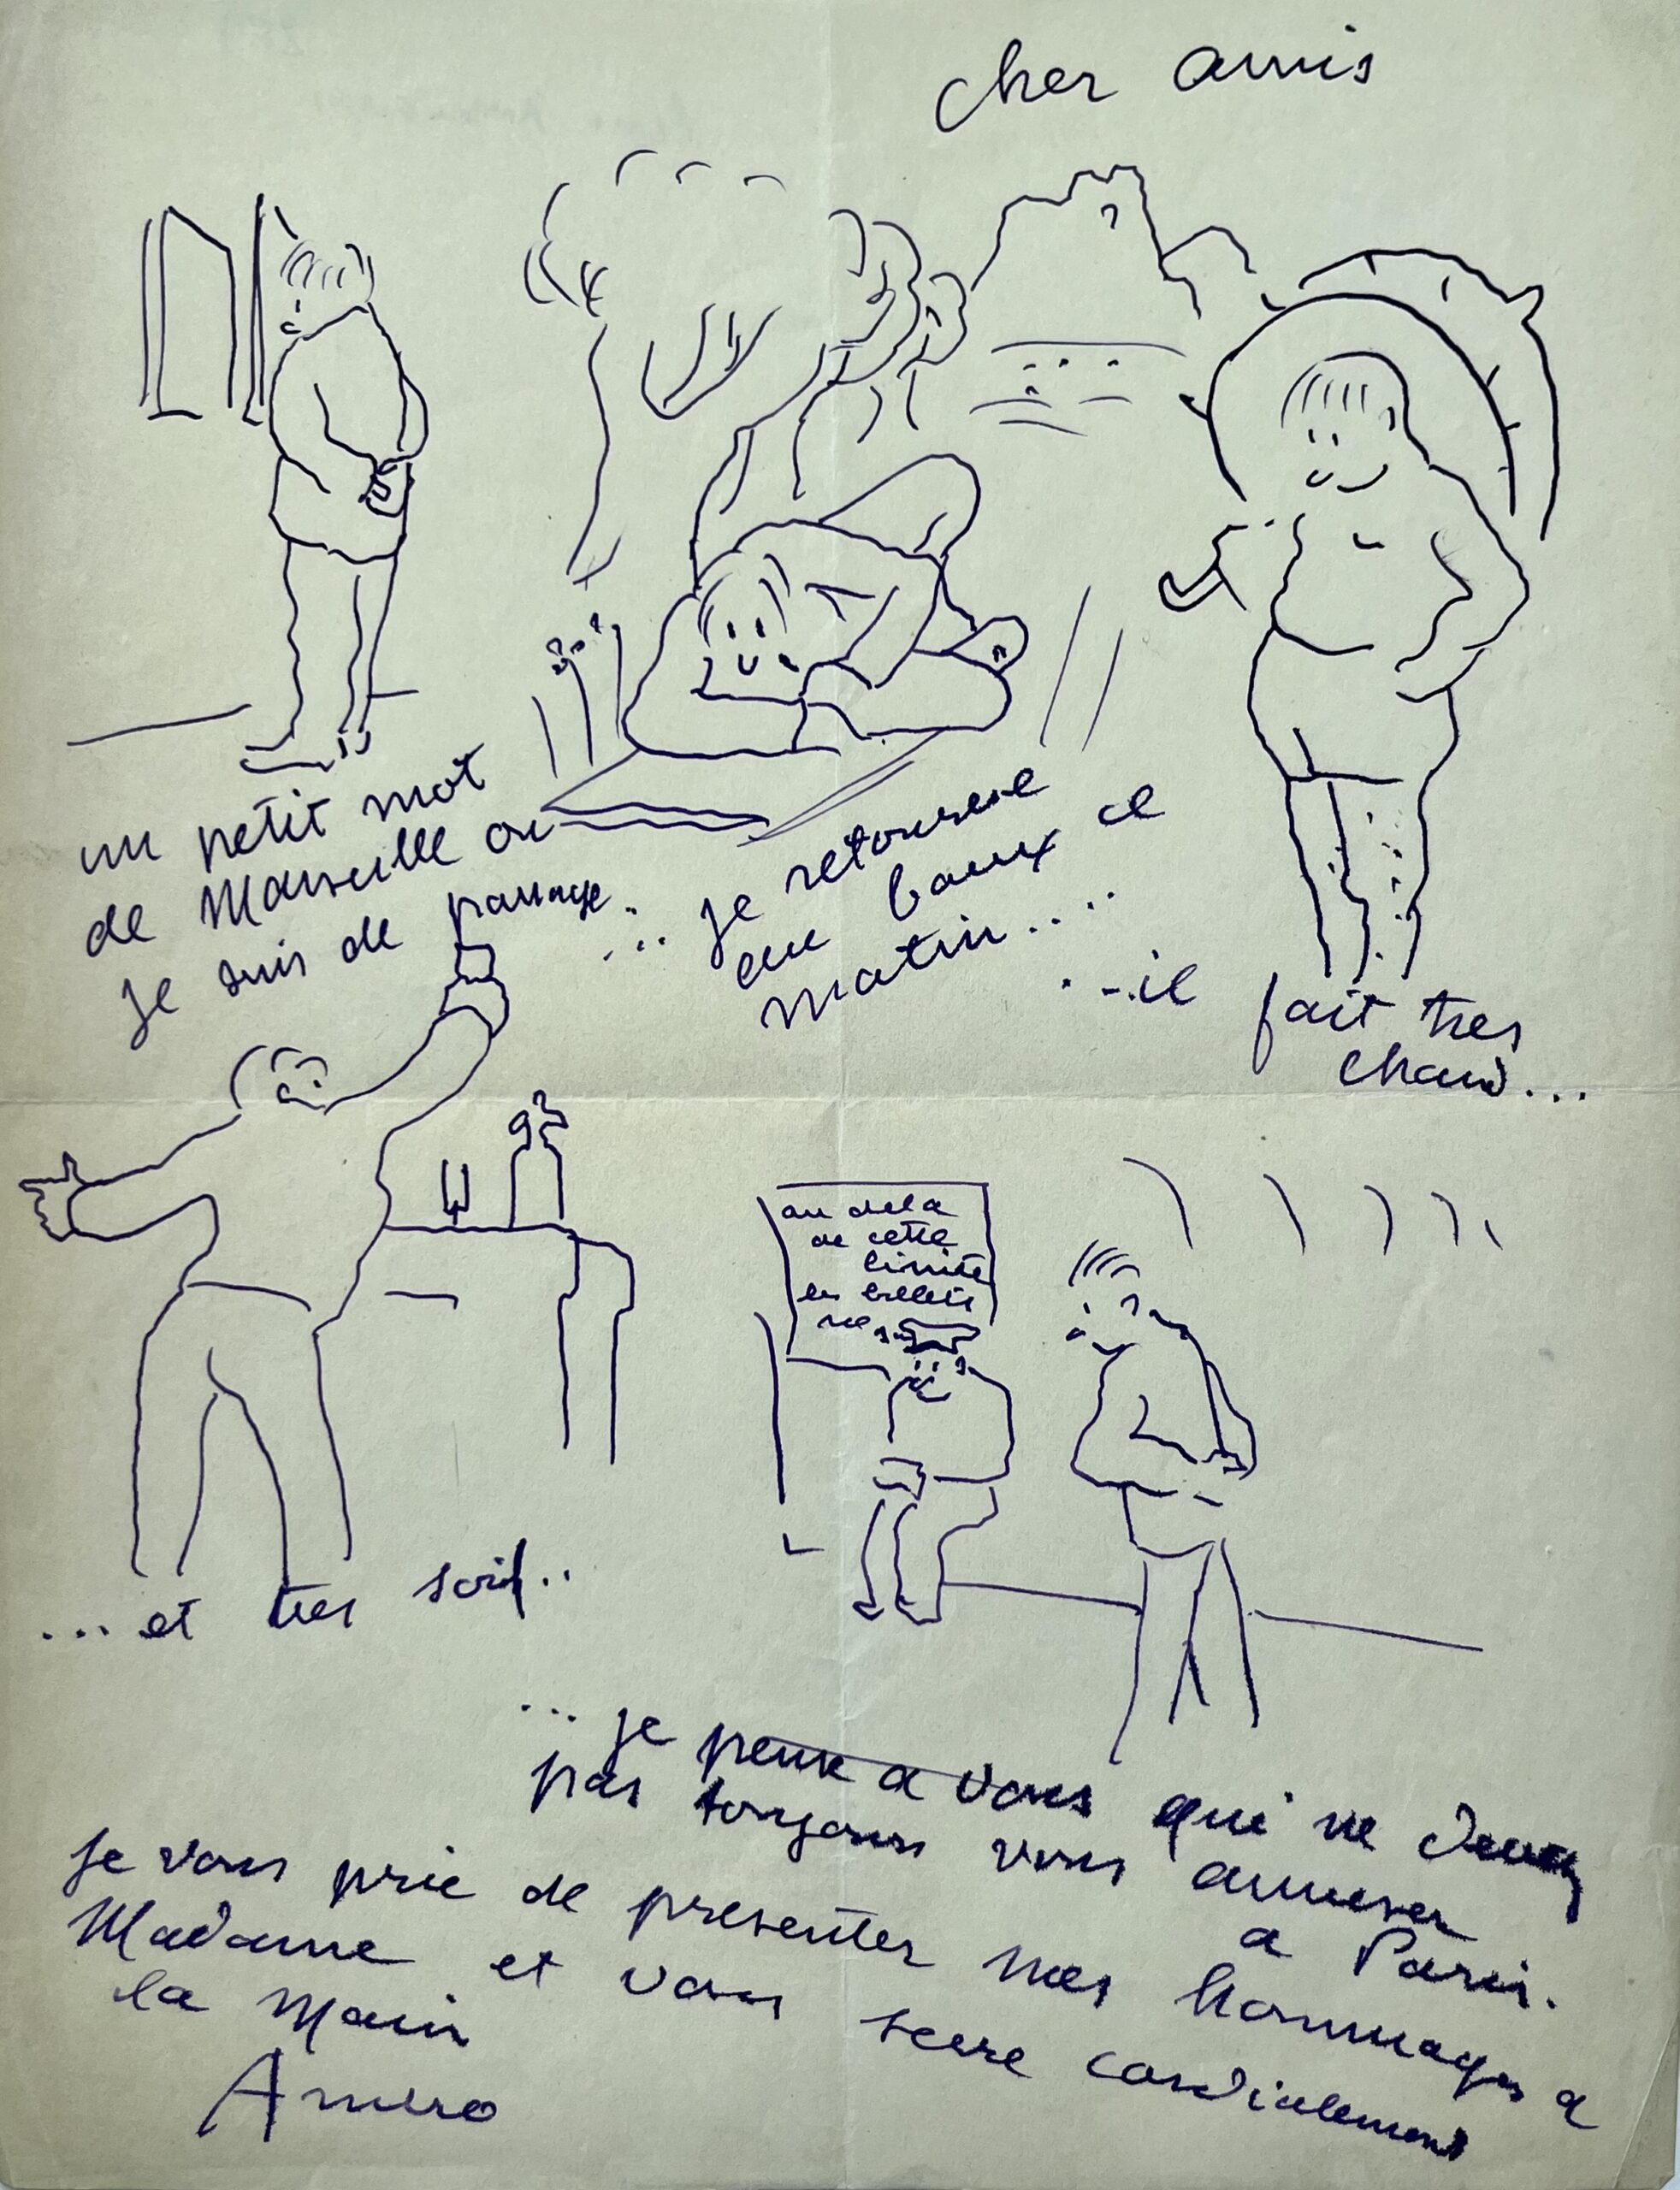 cher amis
un petit mot
de Marseille ou
je suis de passage..
... je retourne
aux baux ce
matin.....
...il fait tres
chaud...
...et tres soif..
au dela
de cette
limite
les billets
... je pense a vous qui ne devez
pas toujours vous amuser
a Paris.
je vous prie de presenter mes hommages a
Madame et vous serre cordialement
la Main